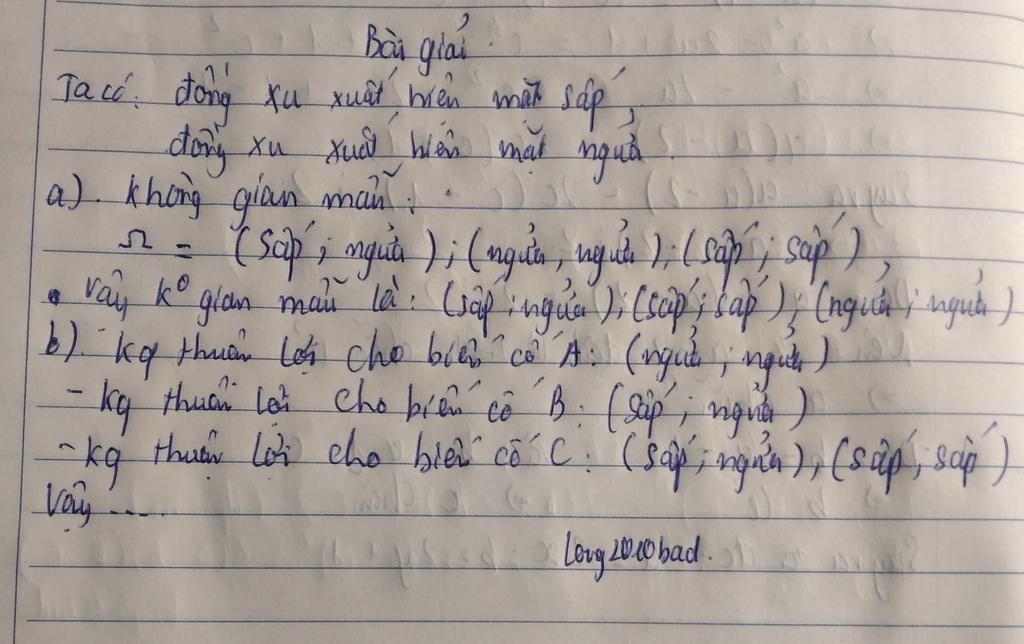 Bài giải.
Ta có: đồng xu xuất hiện mặt sấp,
đồng xu xuất hiện mặt ngửa.
a). không gian mẫu:
Ω = (sấp; ngửa); (ngửa, ngửa); (sấp; sấp),
• vậy k⁰ gian mẫu là: (sấp; ngửa); (sấp; sấp); (ngửa; ngửa)
b). - kq thuận lợi cho biến cố A: (ngửa; ngửa)
- kq thuận lợi cho biến cố B: (sấp; ngửa)
- kq thuận lợi cho biến cố C: (sấp; ngửa), (sấp; sấp)
Vậy .....
Long2010bad.